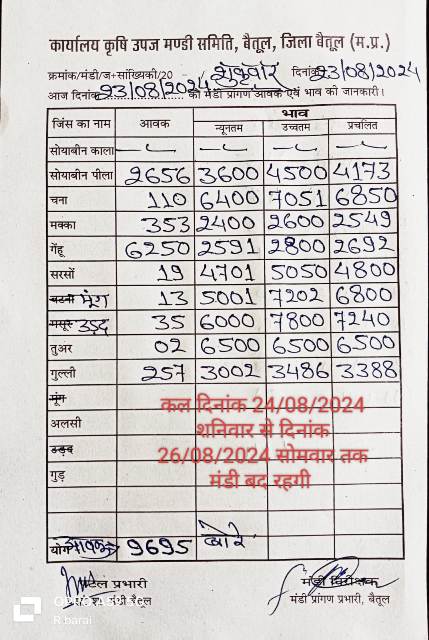 कार्यालय कृषि उपज मण्डी समिति, बैतूल, जिला बैतूल (म.प्र.)
क्रमांक/मंडी/ज+सांख्यिकी/20 - शुक्रवार दिनांक 23/08/2024
आज दिनांक 23/08/2024 को मंडी प्रांगण आवक एवं भाव की जानकारी।
जिंस का नाम आवक भाव
न्यूनतम उच्चतम प्रचलित
सोयाबीन काला
सोयाबीन पीला 2656 3600 4500 4173
चना 110 6400 7051 6850
मक्का 353 2400 2600 2549
गेंहू 6250 2591 2800 2692
सरसों 19 4701 5050 4800
बटनी मूंग 13 5001 7202 6800
मसूर उड़द 35 6000 7800 7240
तुअर 02 6500 6500 6500
गुल्ली 257 3002 3486 3388
मूंग
अलसी
उड़द
गुड़
कल दिनांक 24/08/2024
शनिवार से दिनांक
26/08/2024 सोमवार तक
मंडी बद रहगी
योग आवक 9695 बोरे
प्रभारी मंडी निरीक्षक
मंडी बैतूल मंडी प्रांगण प्रभारी, बैतूल
R.barai